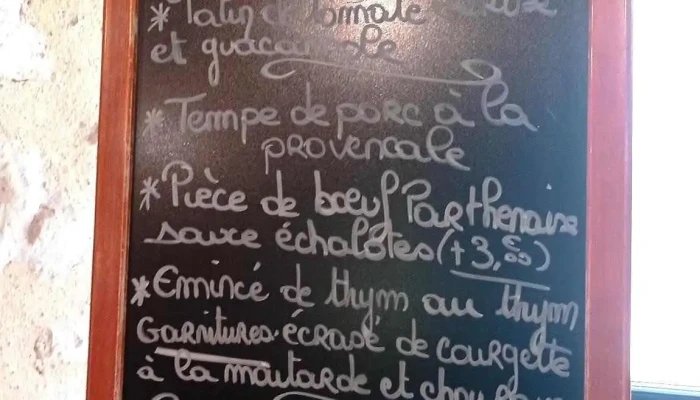 * Tatin de tomate
et guacamole
* Tempe de porc à la
provencale
* Pièce de bœuf Parthenaise
sauce échalotes (+3,€50)
* Emincé de thym au thym
Garnitures: écrasé de courgette
à la moutarde et chou